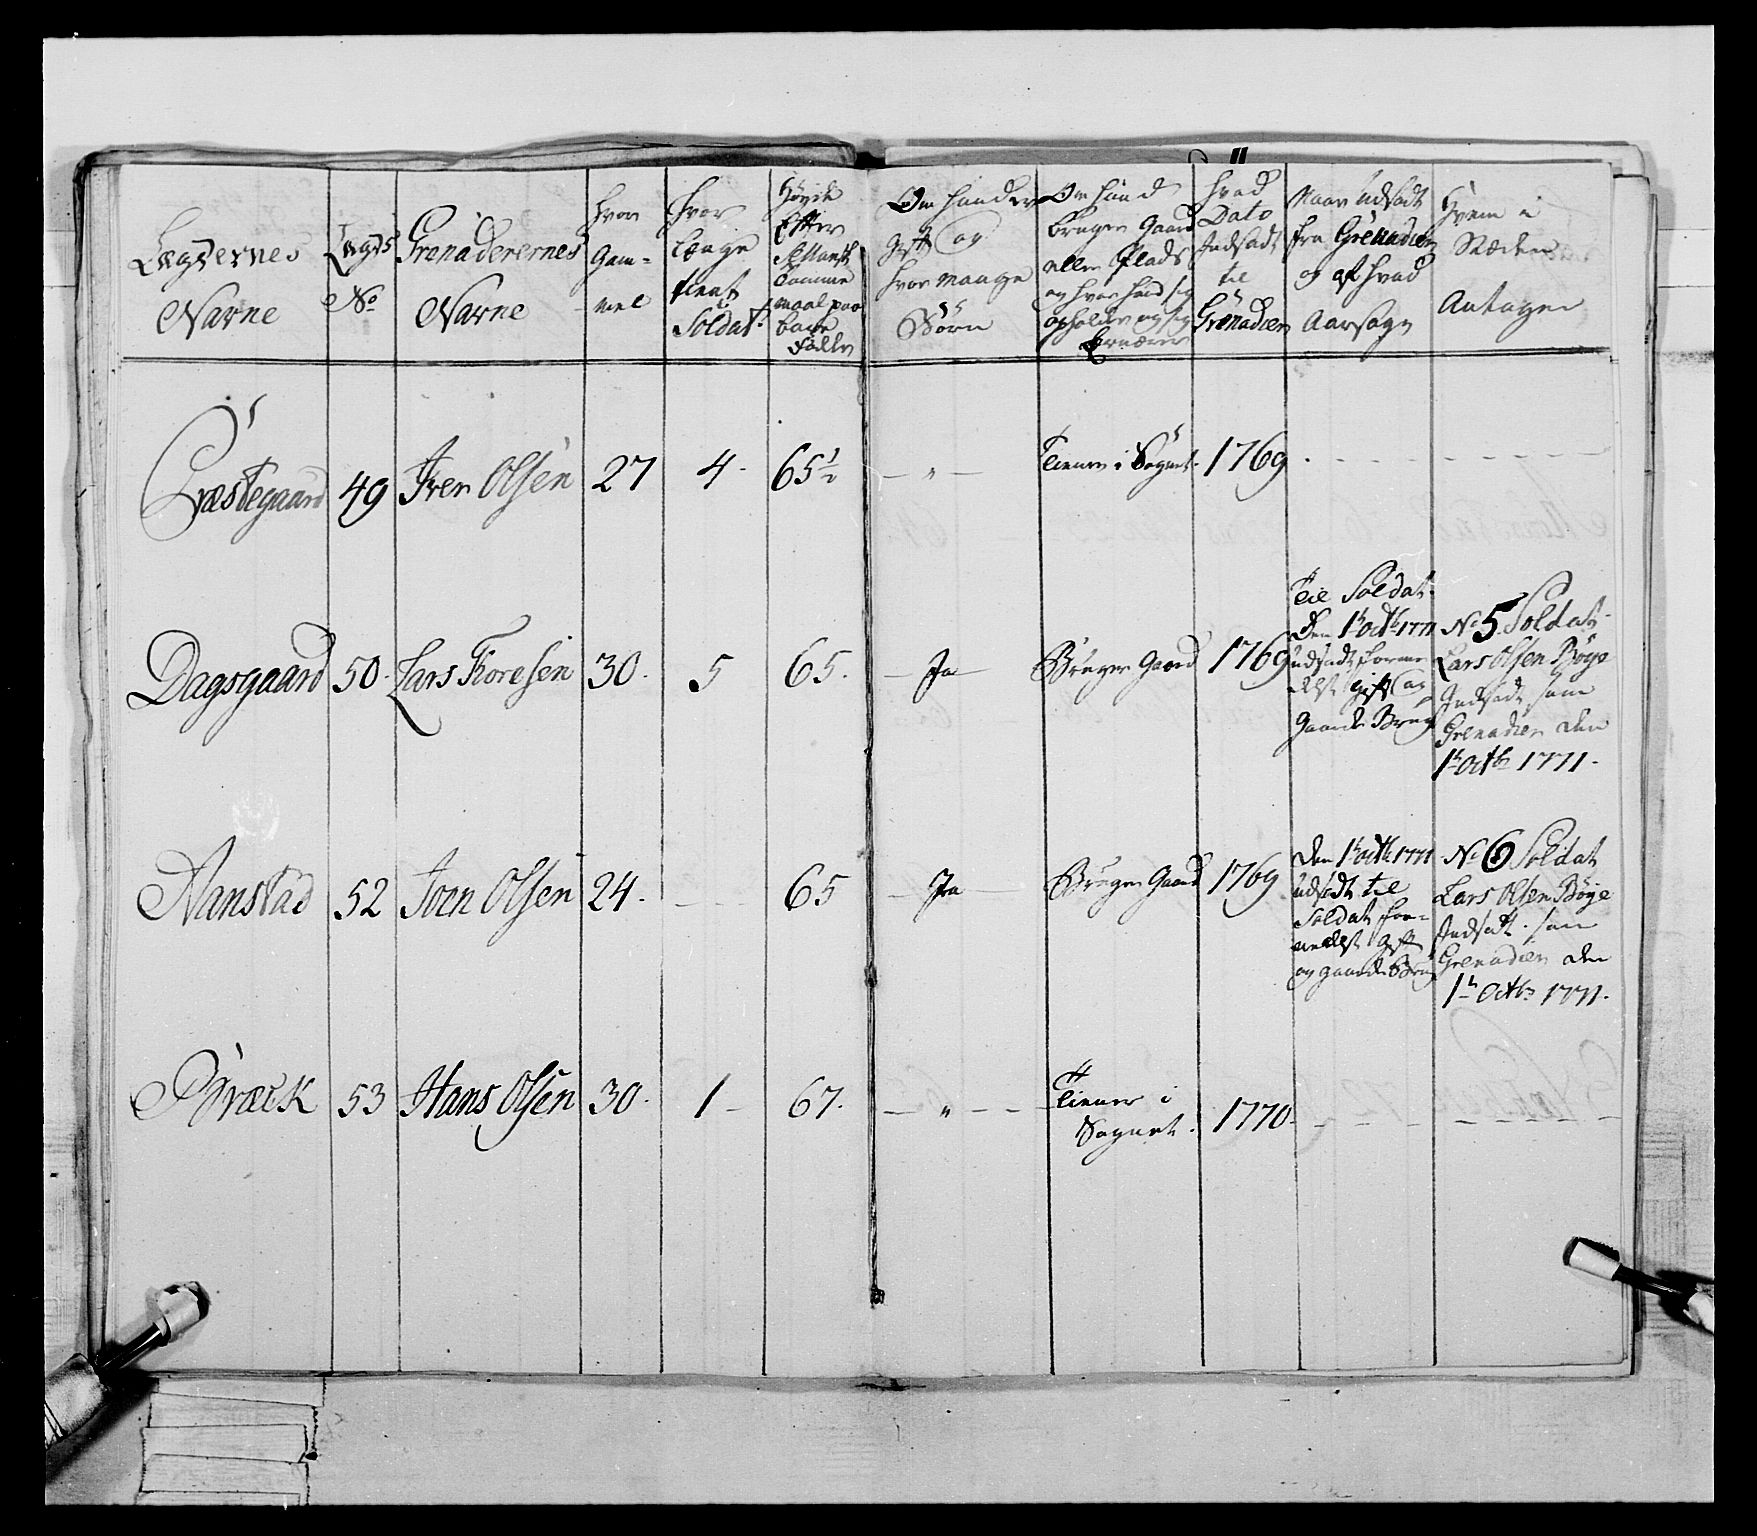 Lægdernes
Navne
Lægds
No
Grenaderernes
Navne
Hvor
Gam-
mel
Hvor
længe
tient
Soldat
Høyde
Efter
Tomme
maal paa
bare
Fødder
Om hand er
gift og
hvor mange
Børn
Om hand
bruger Gaard
eller Plads
og hvor hand sig
opholder og sig
Ernærer
Hvad
Dato
Indsadt
til
Grenadeer
Naar udsadt
fra Grenadeer
og af hvad
Aarsage
Hvem i
Stæden
Antagen
Præstegaard 49 Iver Olsen 27 4 65½ — " — Tiener i Sognet 1769
Dagsgaard 50 Lars Toresen 30 5 65 Ja Bruger Gaard 1769
Til Soldat
den 1t Octb 1771
udsadt forme-
delst Gift og
Gaard Brug
No 5 Soldat
Lars Olsen Böye
Indsadt som
Grenadeer den
1t Octb 1771
Nanstad 52 Joen Olsen 24 — 65 Ja Bruger Gaard 1769
den 1t Octb 1771
udsadt til
Soldat for-
medelst Gift
og gaards Brug
No 6 Soldat
Lars Olsen Böye
Indsatt som
Grenadeer den
1t Octb 1771
Bræck 53 Hans Olsen 30 1 67 — " — Tiener i
Sognet 1770